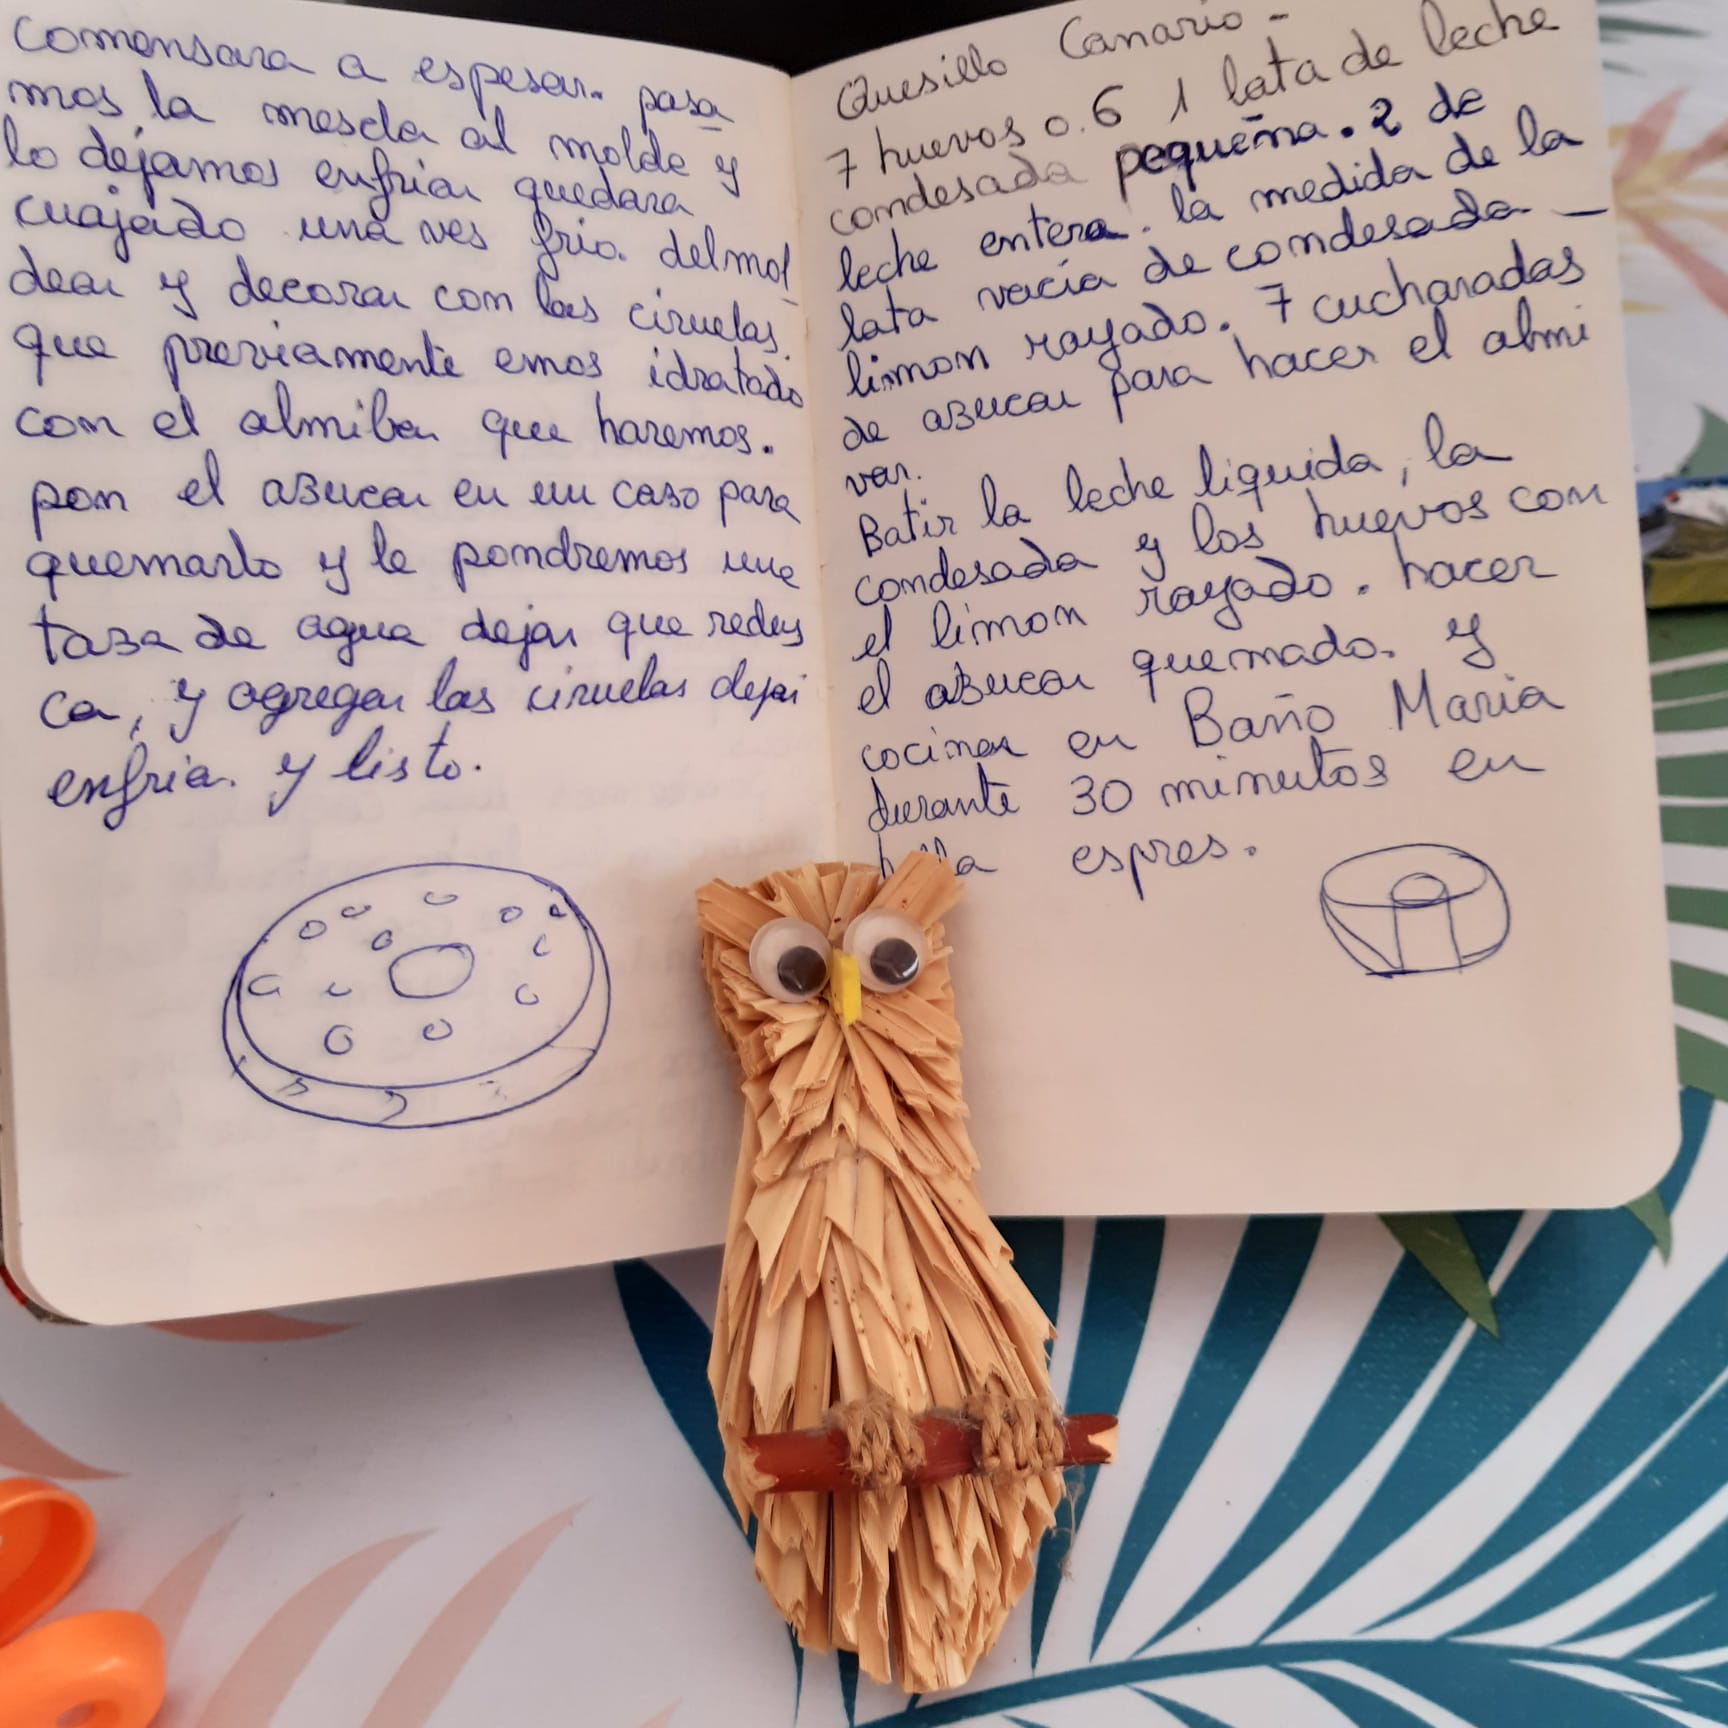 comensara a espesar. pasa
mos la mescla al molde y
lo dejamos enfriar quedara
cuajado una ves frio. delmol
dear y decorar con las ciruelas.
que previamente emos idratado
con el almibar que haremos.
pon el asucar en un caso para
quemarlo y le pondremos una
tasa de agua dejar que redus
ca, y agregar las ciruelas dejar
enfriar. y listo.
Quesillo Canario -
7 huevos o.6 1 lata de leche
condesada pequeña. 2 de
leche entera. la medida de la
lata vacía de condesada -
limon rayado. 7 cucharadas
de asucar para hacer el almi
var.
Batir la leche liquida, la
condesada y los huevos con
el limon rayado. hacer
el asucar quemado. y
cocinar en Baño Maria
durante 30 minutos en
espres.